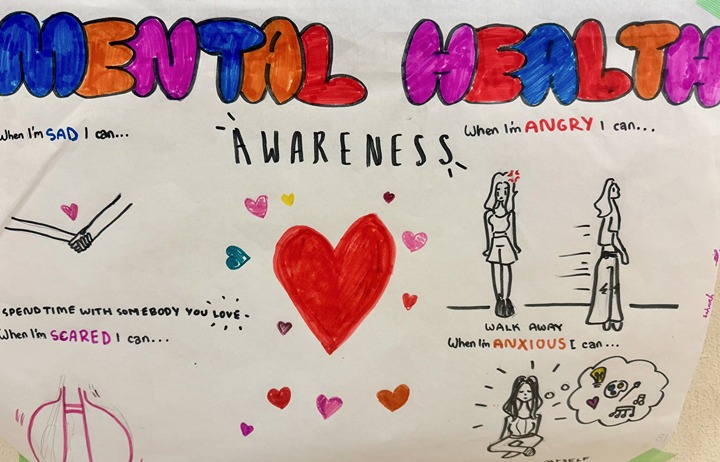 MENTAL HEALTH
AWARENESS
When I'm SAD I can...
SPEND TIME WITH SOMEBODY YOU LOVE
When I'm SCARED I can...
When I'm ANGRY I can...
WALK AWAY
When I'm ANXIOUS I can...